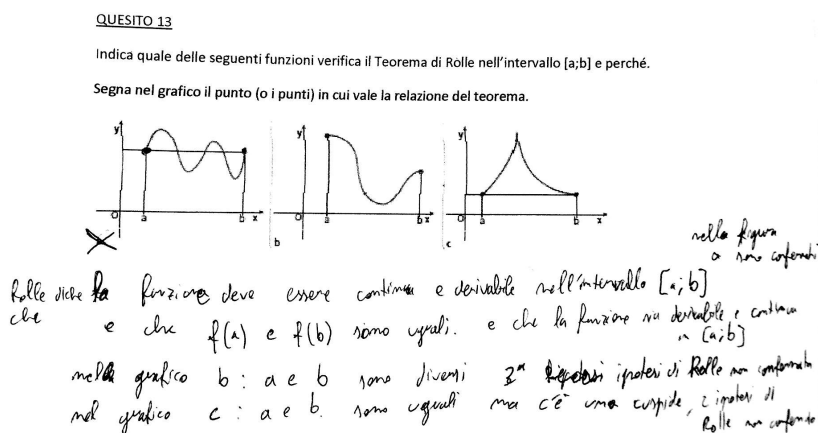 QUESITO 13
Indica quale delle seguenti funzioni verifica il Teorema di Rolle nell'intervallo [a;b] e perché.
Segna nel grafico il punto (o i punti) in cui vale la relazione del teorema.
y y y
O a b x O a b x O a b x
b c
nella figura
a sono confermati
Rolle diche la funzione deve essere continua e derivabile nell'intervallo [a;b]
che e che f(a) e f(b) sono uguali. e che la funzione sia derivabile e continua
in [a;b]
nel grafico b : a e b sono diversi 3ª ipotesi di Rolle non confermata
nel grafico c : a e b sono uguali ma c'è una cuspide, 2 ipotesi di
Rolle non